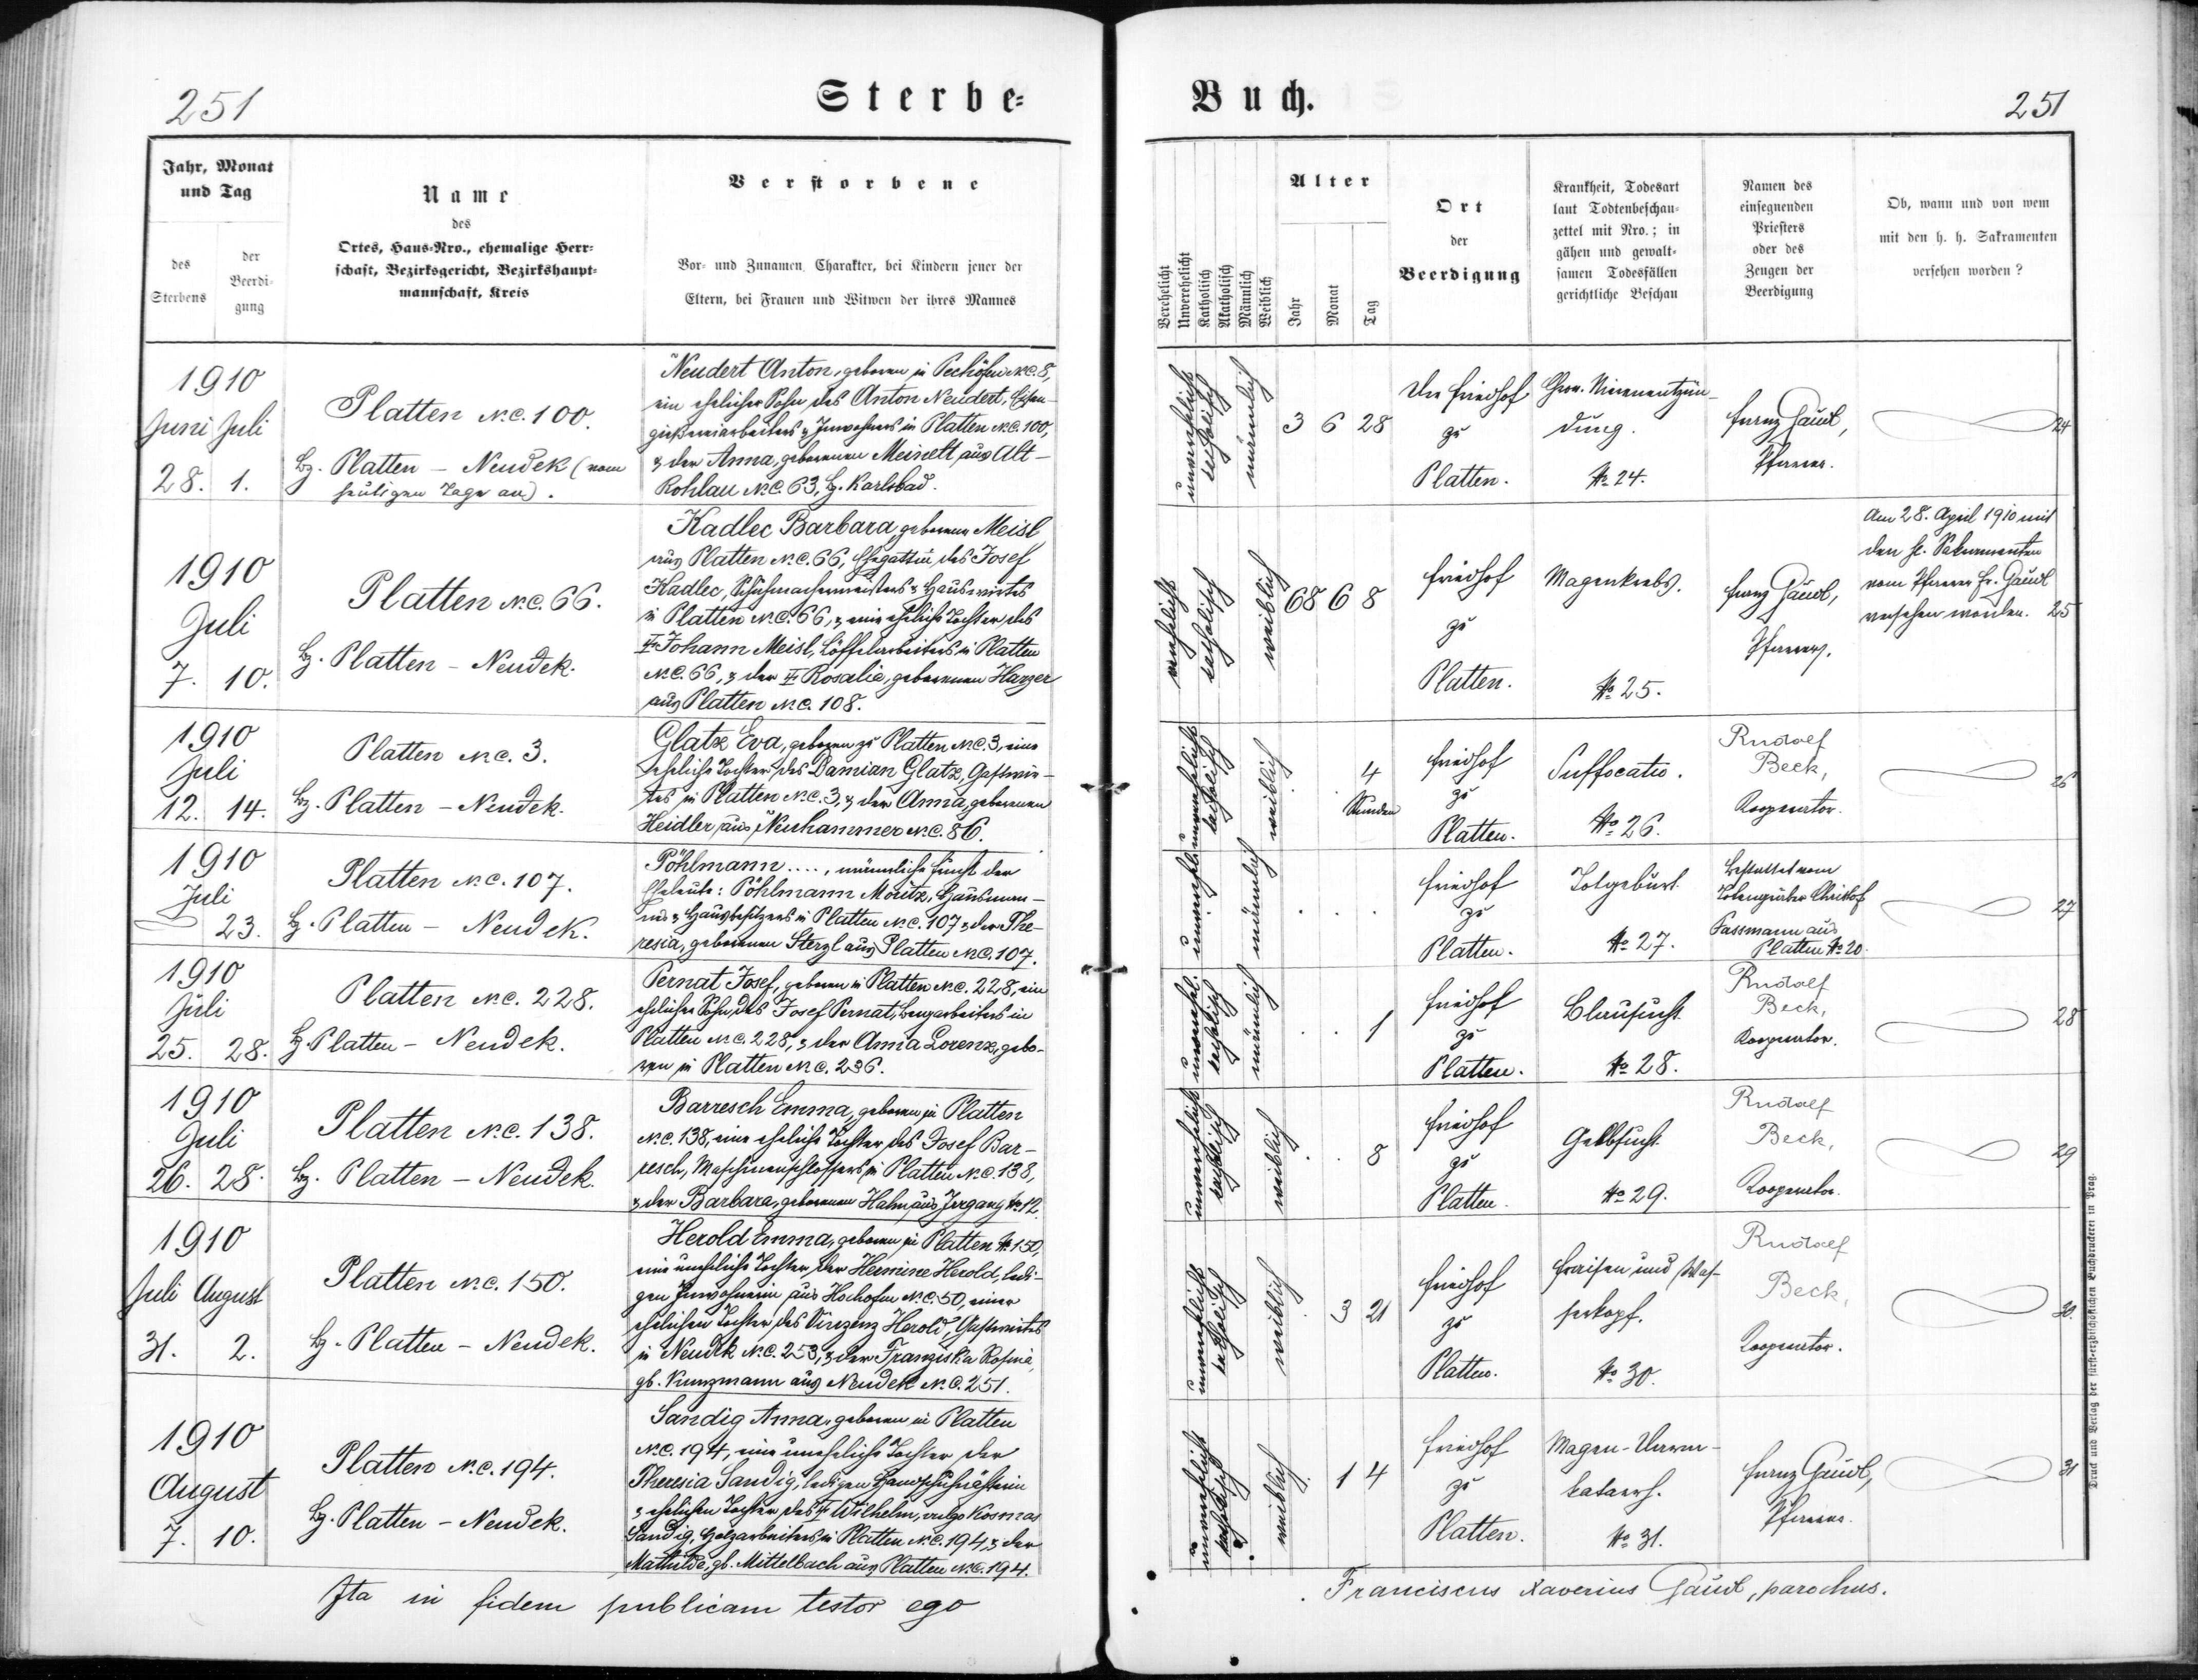 251
Sterbe-
Buch.
251
Jahr, Monat
und Tag
des
Sterbens
der
Beerdi-
gung
Name
des
Ortes, Haus-Nro., ehemalige Herr-
schaft, Bezirksgericht, Bezirkshaupt-
mannschaft, Kreis
Verstorbene
Vor- und Zunamen, Charakter, bei Kindern jener der
Eltern, bei Frauen und Witwen der ihres Mannes
Verehelicht
Unverehelicht
Katholisch
Akatholisch
Männlich
Weiblich
Alter
Jahr
Monat
Tag
Ort
der
Beerdigung
Krankheit, Todesart
laut Todtenbeschau-
zettel mit Nro.; in
gähen und gewalt-
samen Todesfällen
gerichtliche Beschau
Namen des
einsegnenden
Priesters
oder des
Zeugen der
Beerdigung
Ob, wann und von wem
mit den h. h. Sakramenten
versehen worden?
1910
Juni Juli
28. 1.
Platten N.C. 100.
Bz. Platten - Neudek (vom
heutigen Tage an).
Neudert Anton, geboren in Pechöfen N.C. 8,
ein ehelicher Sohn des Anton Neudert, Eisen-
giessereiarbeiters & Inwohners in Platten N.C. 100,
& der Anna, geborenen Meinelt aus Alt-
Rohlau N.C. 63, Bz. Karlsbad.
unverehelicht
katholisch
männlich
3 6 28
Friedhof
zu
Platten.
Chron. Nierenentzün-
dung.
No 24.
Franz Gaudl,
Pfarrer.
24
1910
Juli
7. 10.
Platten N.C. 66.
Bz. Platten - Neudek.
Kadlec Barbara, geborene Meisl
aus Platten N.C. 66, Ehegattin des Josef
Kadlec, Schuhmachermeisters & Hauswirtes
in Platten N.C. 66, & eine eheliche Tochter des
Johann Meisl, Löffelarbeiters in Platten
N.C. 66, & der Rosalia, geborenen Harzer
aus Platten N.C. 108.
verehelicht
katholisch
weiblich
68 6 8
Friedhof
zu
Platten.
Magenkrebs.
No 25.
Franz Gaudl,
Pfarrer.
Am 28. April 1910 mit
den hl. Sakramenten
vom Pfarrer Fr. Gaudl
versehen worden. 25
1910
Juli
12. 14.
Platten N.C. 3.
Bz. Platten - Neudek.
Glatz Eva, geboren zu Platten N.C. 3, eine
eheliche Tochter des Damian Glatz, Gastwir-
tes in Platten N.C. 3, & der Anna, geborenen
Heidler aus Neuhammer N.C. 86.
unverehelicht
katholisch
weiblich
4
Stunden
Friedhof
zu
Platten.
Suffocatio.
No 26.
Rudolf
Beck,
Kooperator.
26
1910
Juli
23.
Platten N.C. 107.
Bz. Platten - Neudek.
Pöhlmann ...., männliche Frucht der
Eheleute: Pöhlmann Moritz,
& Hausbesitzers in Platten N.C. 107 & der The-
resia, geborenen Sterzl aus Platten N.C. 107.
unverehel.
männlich
Friedhof
zu
Platten.
Totgeburt.
No 27.
Bestattet vom
Totengräber Christof
Fassmann aus
Platten No 20.
27
1910
Juli
25. 28.
Platten N.C. 228.
Bz. Platten - Neudek.
Pernat Josef, geboren in Platten N.C. 228, ein
ehelicher Sohn des Josef Pernat, Bergarbeiters in
Platten N.C. 228, & der Anna Lorenz, gebo-
ren in Platten N.C. 236.
unverehel.
katholisch
männlich
1
Friedhof
zu
Platten.
Blausucht.
No 28.
Rudolf
Beck,
Kooperator.
28
1910
Juli
26. 28.
Platten N.C. 138.
Bz. Platten - Neudek.
Barresch Emma, geboren in Platten
N.C. 138, eine eheliche Tochter des Josef Bar-
resch, Maschinenschlossers in Platten N.C. 138,
& der Barbara, geborenen Hahn aus Irrgang No 12.
unverehelicht
katholisch
weiblich
8
Friedhof
zu
Platten.
Gelbsucht.
No 29.
Rudolf
Beck,
Kooperator.
29
1910
Juli August
31. 2.
Platten N.C. 150.
Bz. Platten - Neudek.
Herold Emma, geboren in Platten No 150,
eine uneheliche Tochter der Hermine Herold, ledi-
gen Inwohnerin aus Hochofen N.C. 50, einer
ehelichen Tochter des Vinzenz Herold, Gastwirtes
in Neudek N.C. 253, & der Franziska Rosina,
gb. Kunzmann aus Neudek N.C. 251.
unverehelicht
katholisch
weiblich
3 21
Friedhof
zu
Platten.
Fraisen und Was-
serkopf.
No 30.
Rudolf
Beck,
Kooperator.
30.
1910
August
7. 10.
Platten N.C. 194.
Bz. Platten - Neudek.
Sandig Anna, geboren in Platten
N.C. 194, eine uneheliche Tochter der
Theresia Sandig, ledigen Handschuhnäherin
& ehelichen Tochter des Wilhelm, vulgo Kosmas
Sandig, Holzarbeiters in Platten N.C. 194, & der
Mathilde, gb. Mittelbach aus Platten N.C. 194.
unverehelicht
katholisch
weiblich
1 4
Friedhof
zu
Platten.
Magen-Darm-
katarrh.
No 31.
Franz Gaudl,
Pfarrer.
31
Ita in fidem publicam testor ego
Franciscus Xaverius Gaudl, parochus.
Druck und Verlag der fürst-erzbischöflichen Buchdruckerei in Prag.